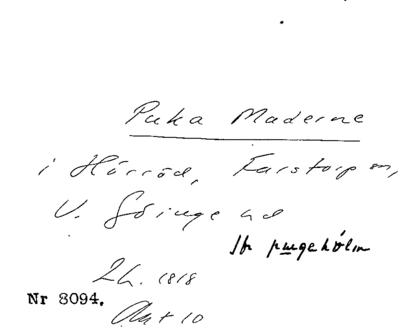 Puka Maderne
i Hörröd, Farstorp sn,
V. Göinge hd
Lh. 1818
Nr 8094.
Akt 10